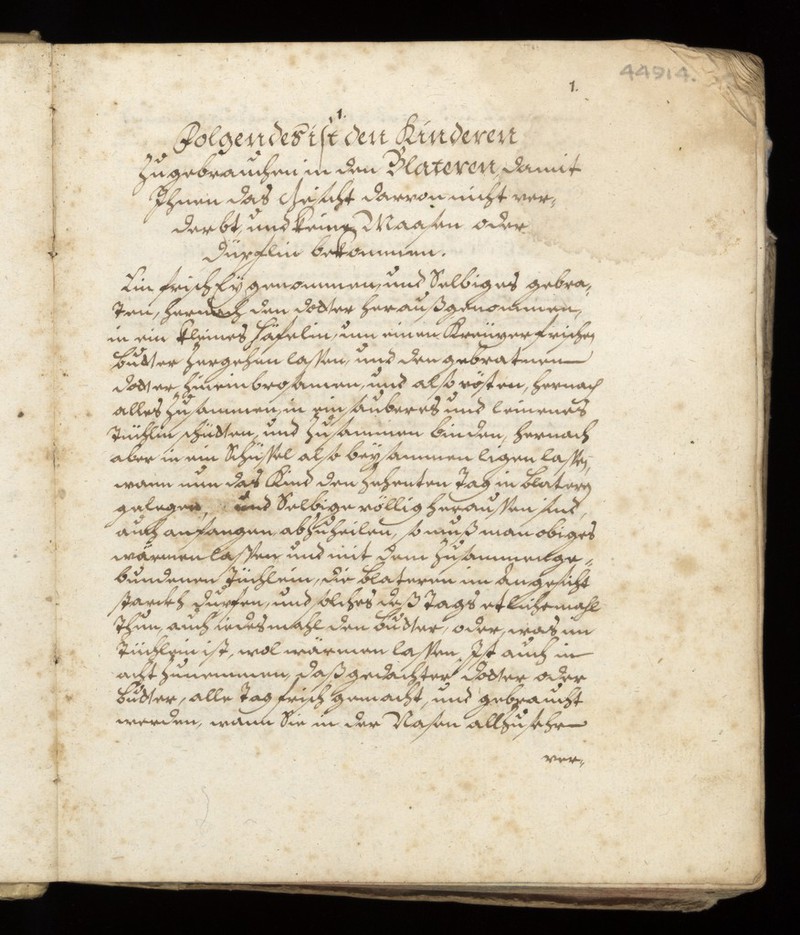 44914.
1.
1.
Folgendes ist den Kinderen
zugebrauchen in den Blateren, damit
Ihnen das Gesicht darvon nicht ver-
derbt, und keine Maasen oder
dürfflin bekommen.
Ein frisch Ey genommen, und Selbiges gebra-
ten, hernach den dotter heraußgenommen,
in ein kleines häfelin, um einen Kreüzer frischen
butter zergehn lassen, und den gebratnen
dotter hinein brosamen, und also rösten, hernach
alles zusammen, in ein sauberes und leinenes
Tüchlin schütten, und zusammen binden, hernach
aber in ein Schüssel also beysammen ligen lassen,
wann nun das Kind den zehenten Tag in blateren
gelegen, und Selbige völlig heraussen sind,
auch anfangen abzuheilen, so muß man obiges
wärmen lassen, und mit dem zusammenge-
bundenen Tüchlein, die blateren im Angesicht
starckh, und solches deß Tags etlichemahl
thun, auch iedesmahl den butter, oder, was im
Tüchlein ist, wol wärmen lassen, Ist auch in
acht zunemmen, daß gedachter dotter oder
butter, alle Tag frisch gemacht, und gebraucht
werden, wann Sie in der Nasen allzusehr
ver-